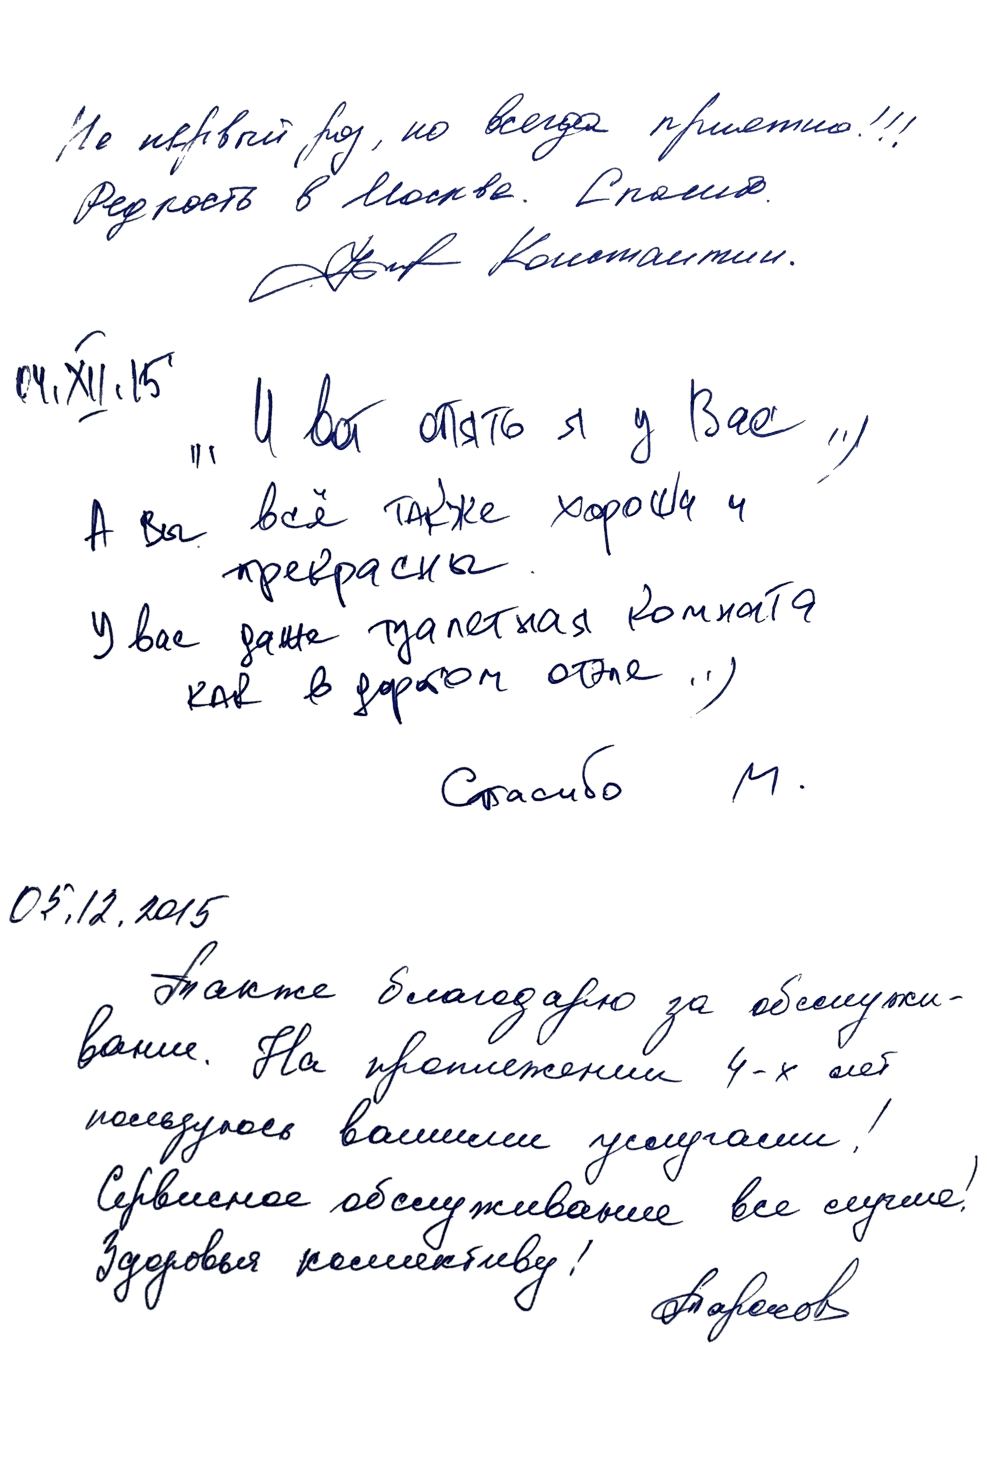 Не первый раз, но всегда приятно!!!
Редкость в Москве. Спасибо.
Константин.
04.XII.15
„ И вот опять я у Вас „)
А Вы всё также хороши и
прекрасны.
У вас даже туалетная комната
как в дорогом отеле :)
Спасибо М.
05.12.2015
Также благодарю за обслужи-
вание. На протяжении 4-х лет
пользуюсь вашими услугами!
Сервисное обслуживание все лучше!
Здоровья коллективу!